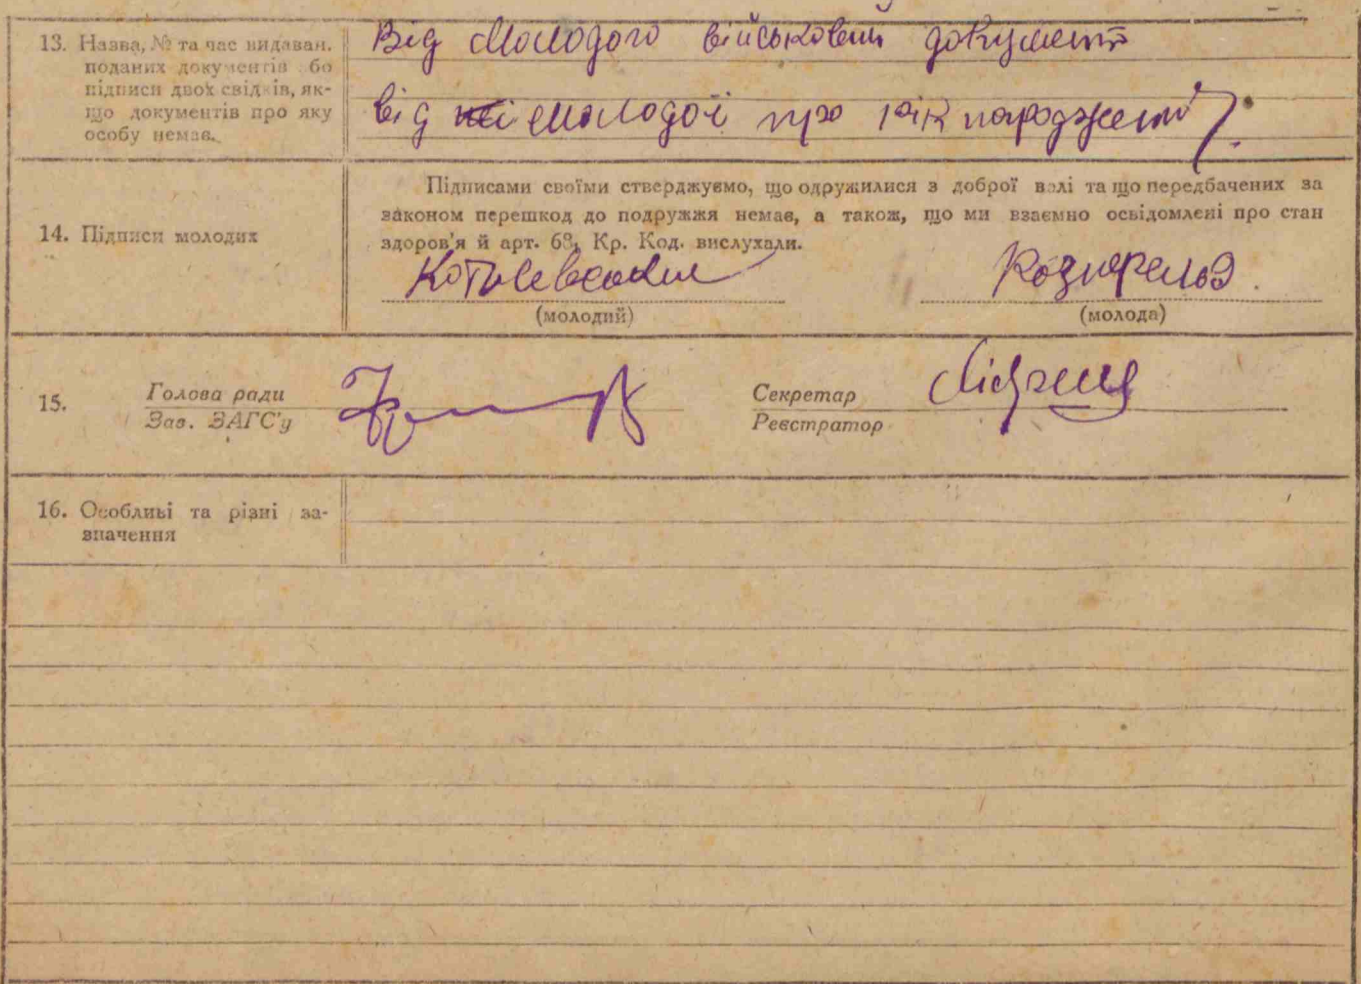 13. Назва, № та час видаван.
поданих документів або
підписи двох свідків, як-
що документів про яку
особу немає.
Від Молодого військовий документ
від молодої про рік народження
14. Підписи молодих
Підписами своїми стверджуємо, що одружилися з доброї волі та що передбачених за
законом перешкод до подружжя немає, а також, що ми взаємно освідомлені про стан
здоров'я й арт. 68, Кр. Код. вислухали.
(молодий) (молода)
15. Голова ради Секретар
Зав. ЗАГС'у Реєстратор
16. Особливі та різні за-
значення